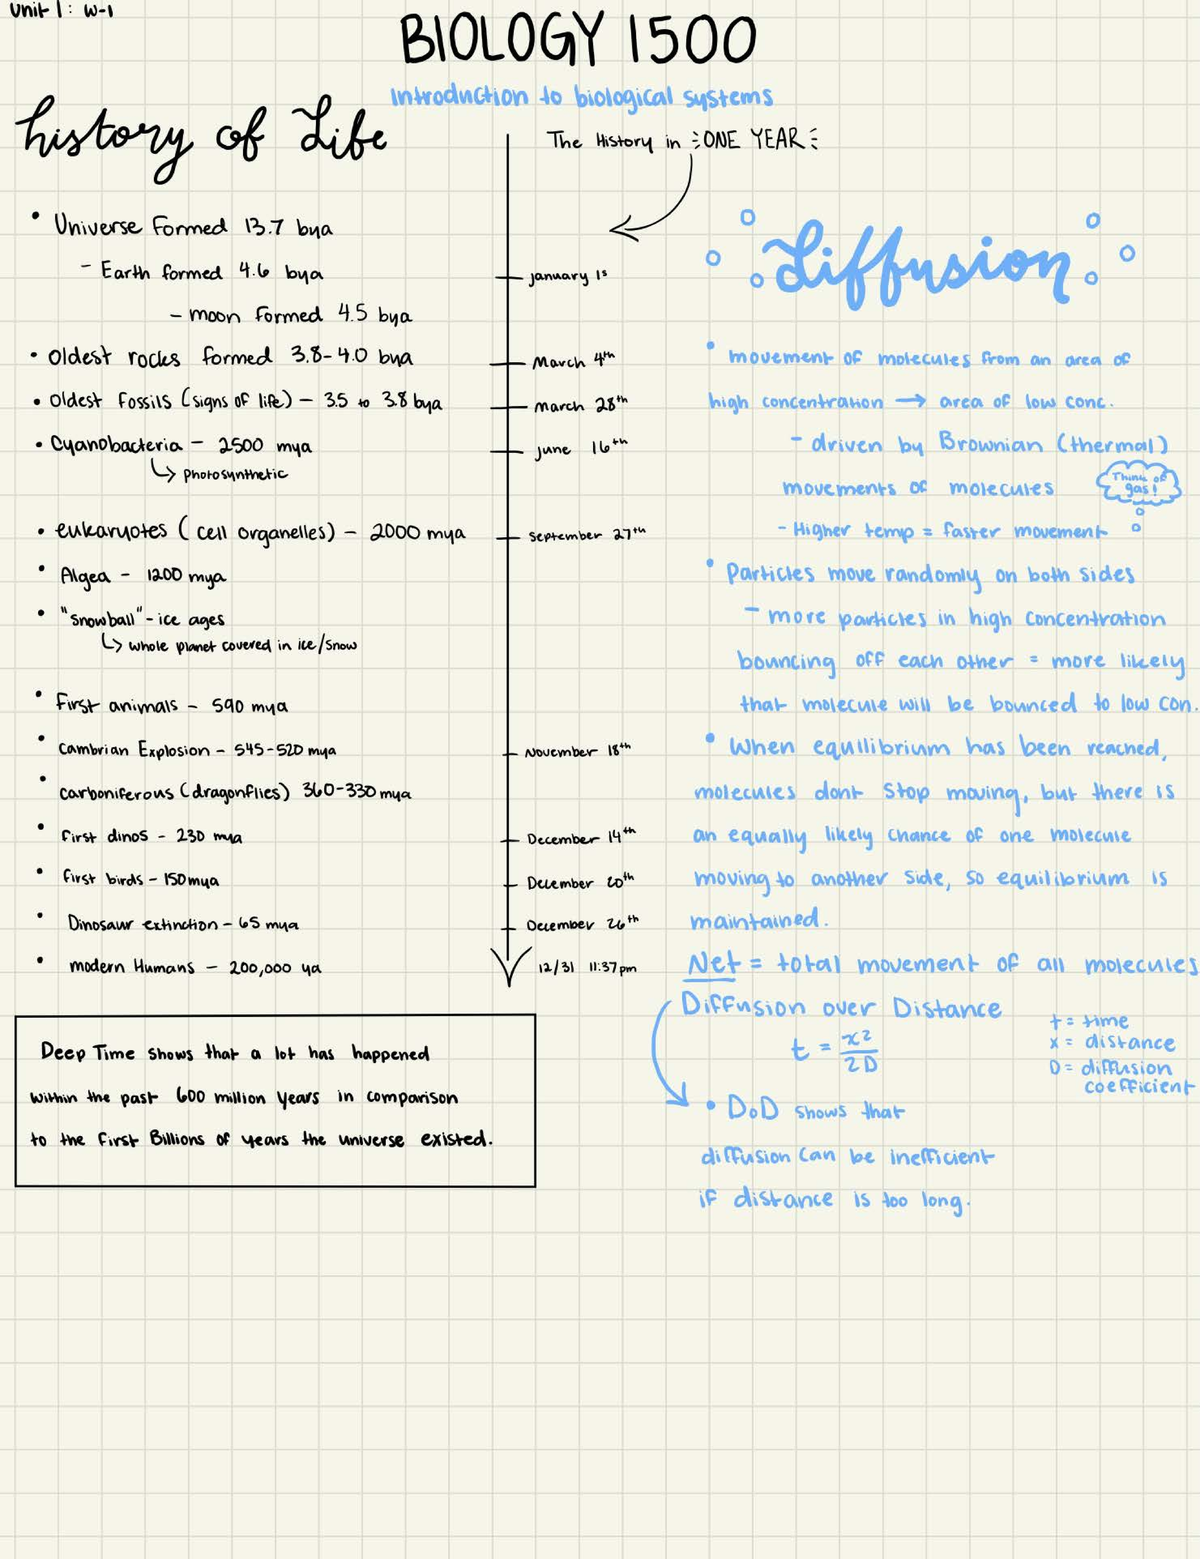 Unit 1: W-1
BIOLOGY 1500
Introduction to biological systems
history of Life
The History in ONE YEAR
• Universe Formed 13.7 bya
- Earth formed 4.6 bya
- moon formed 4.5 bya
• Oldest rocks formed 3.8-4.0 bya
• Oldest Fossils (signs of life) - 3.5 to 3.8 bya
• Cyanobacteria - 2500 mya
↳ Photosynthetic
• eukaryotes (cell organelles) - 2000 mya
• Algea - 1200 mya
• "Snowball" - ice ages
↳ whole planet covered in ice/snow
• First animals - 590 mya
• Cambrian Explosion - 545-520 mya
• carboniferous (dragonflies) 360-330 mya
• First dinos - 230 mya
• First birds - 150 mya
• Dinosaur extinction - 65 mya
• modern Humans - 200,000 ya
january 1s
March 4th
March 28th
june 16th
September 27th
November 18th
December 14th
December 20th
December 26th
12/31 11:37pm
Deep Time shows that a lot has happened
within the past 600 million years in comparison
to the first Billions of years the universe existed.
Diffusion
• movement of molecules from an area of
high concentration → area of low conc.
- driven by Brownian (thermal)
movements of molecules
Think of
gas!
- Higher temp = faster movement
• Particles move randomly on both sides
- more particles in high concentration
bouncing off each other = more likely
that molecule will be bounced to low con.
• When equilibrium has been reached,
molecules dont stop moving, but there is
an equally likely chance of one molecule
moving to another side, so equilibrium is
maintained.
Net = total movement of all molecules
Diffusion over Distance
t = x²/2D
t = time
x = distance
D = diffusion
coefficient
• DoD shows that
diffusion can be inefficient
if distance is too long.